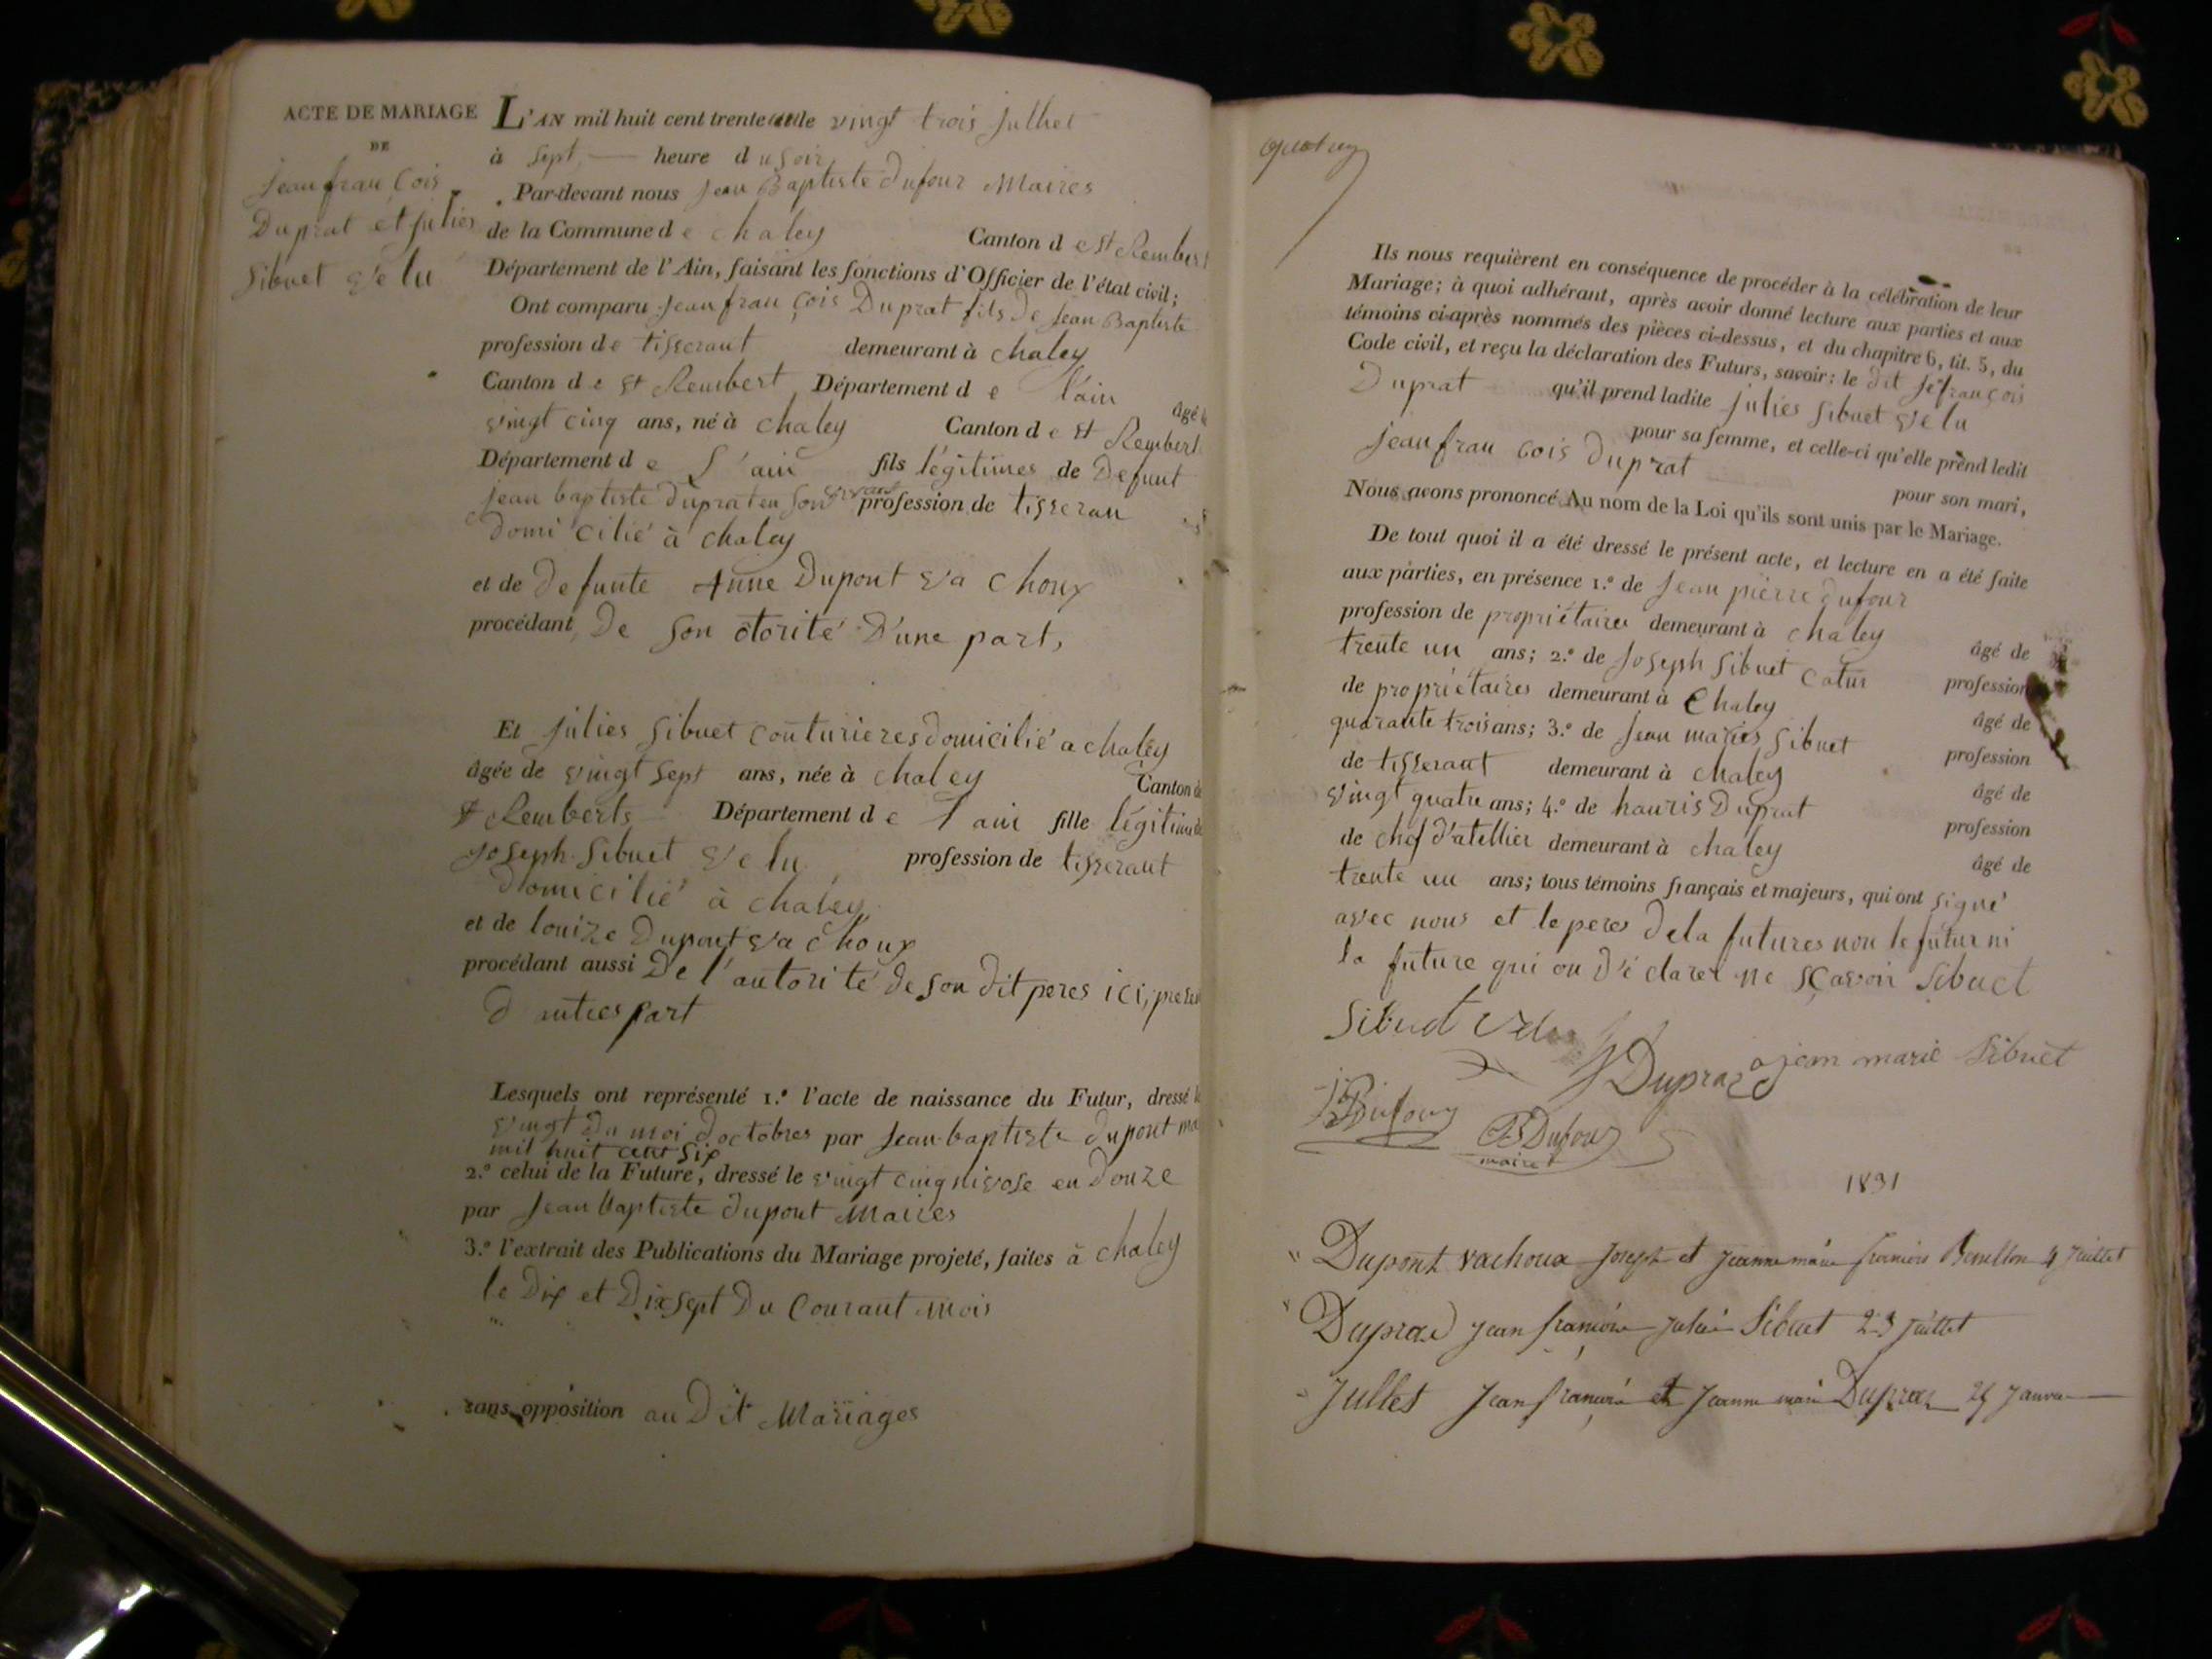 ACTE DE MARIAGE
DE
jean fran cois
Duprat et julies
Sibuet ve lu
L'AN mil huit cent trente un le vingt trois jullet
à sept heure du soir
Par-devant nous jean Baptiste Dufour Maires
de la Commune de chaley Canton de st Rembert
Département de l'Ain, faisant les fonctions d'Officier de l'état civil;
Ont comparu jean fran çois Duprat fils de jean Baptiste
profession de tisseraut demeurant à chaley
Canton de st Rembert Département de l'ain âgé
vingt cinq ans, né à chaley Canton de st Rembert
Département de L'ain fils légitimes de Defunt
jean baptiste duprat en son vivant profession de tisseran
domi cilié à chaley
et de Defunte Anne Dupont va choux
procédant De son otorité D'une part,
Et julies sibuet couturieres domicilié a chaley
âgée de vingt sept ans, née à chaley Canton de
st Remberts Département de l'ain fille légitime de
joseph Sibuet ve lu profession de tisseraut
domicilié à chaley
et de louize Dupont va choux
procédant aussi De l'autorité de son dit peres ici, present
d'autres part
Lesquels ont représenté 1.º l'acte de naissance du Futur, dressé le
vingt du moi d'octobres par jean baptiste dupont ma
mil huit cent six
2.º celui de la Future, dressé le vingt cinq nivose en Douze
par jean baptiste dupont Maires
3.º l'extrait des Publications du Mariage projeté, faites à chaley
le Dix et Dix sept Du Courant Mois
sans opposition au Dit Mariages
Ils nous requièrent en conséquence de procéder à la célébration de leur
Mariage; à quoi adhérant, après avoir donné lecture aux parties et aux
témoins ci-après nommés des pièces ci-dessus, et du chapitre 6, tit. 5, du
Code civil, et reçu la déclaration des Futurs, savoir: le dit je françois
Duprat qu'il prend ladite julies sibuet ve lu
pour sa femme, et celle-ci qu'elle prend ledit
jean fran cois duprat
pour son mari,
Nous avons prononcé Au nom de la Loi qu'ils sont unis par le Mariage.
De tout quoi il a été dressé le présent acte, et lecture en a été faite
aux parties, en présence 1.º de jean pierre dufour
profession de propriétaires demeurant à chaley âgé de
trente un ans; 2.º de joseph sibuet catin profession
de propriétaires demeurant à Chaley âgé de
quarante trois ans; 3.º de jean maries sibuet profession
de tisseraut demeurant à chaley âgé de
vingt quatre ans; 4.º de hauris Duprat profession
de chef d'atellier demeurant à chaley âgé de
trente un ans; tous témoins français et majeurs, qui ont signé
avec nous et le peres de la futures non le futur ni
la future qui on dé clarer ne sçavoir Sibuet
Sibuet velu
Dupraz jean marie Sibuet
JP Dufour
JB Dufour
maire
1831
Dupont vachoux joseph et jeanne marie 4 juillet
Dupraz jean francois julie Sibuet 23 juillet
Jullet Jean francois et jeanne marie Dupraz 25 Janvier